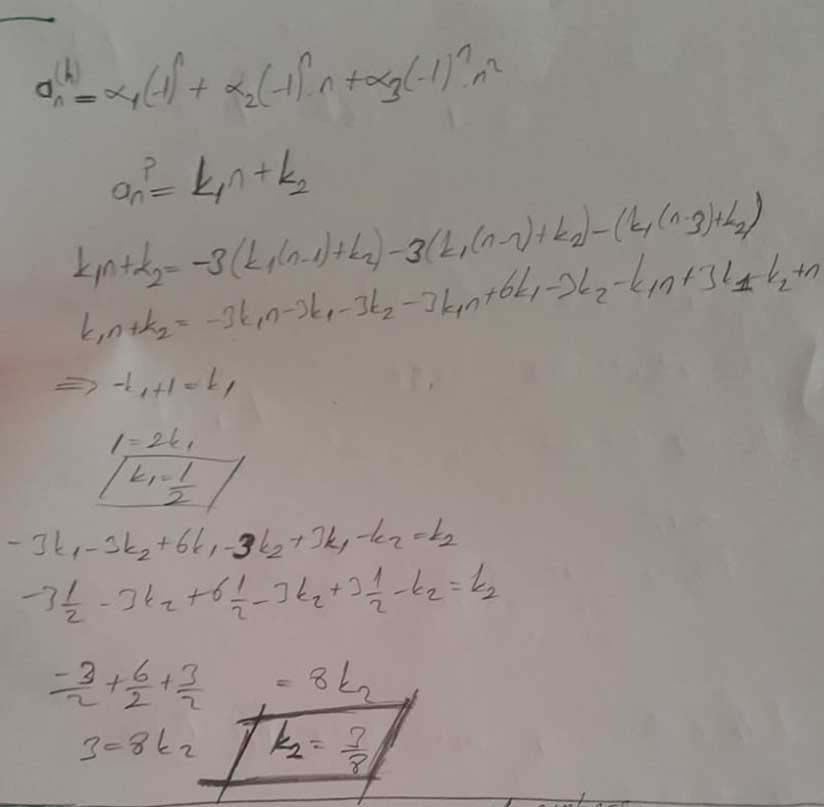 aₙ⁽ʰ⁾ = α₁(-1)ⁿ + α₂(-1)ⁿ.n + α₃(-1)ⁿ.n²
aₙᵖ = k₁n + k₂
k₁n+k₂ = -3(k₁(n-1)+k₂)-3(k₁(n-2)+k₂)-(k₁(n-3)+k₂)
k₁n+k₂ = -3k₁n-3k₁-3k₂-3k₁n+6k₁-3k₂-k₁n+3k₁-k₂+n
⇒ -k₁+1=k₁
1=2k₁
k₁=1/2
-3k₁-3k₂+6k₁-3k₂+3k₁-k₂=k₂
-3 1/2 - 3k₂ + 6 1/2 - 3k₂ + 3 1/2 - k₂ = k₂
-3/2 + 6/2 + 3/2 = 8k₂
3=8k₂ k₂ = 3/8